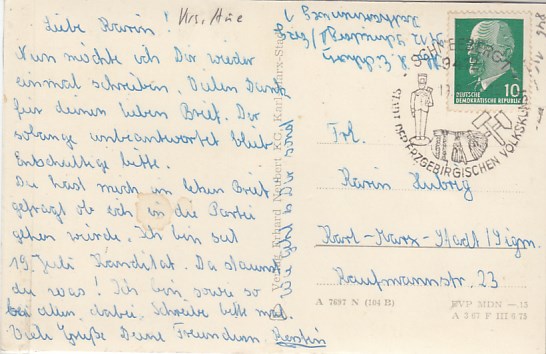 Krs. Aue
Liebe Karin!
Nun möchte ich Dir wieder
einmal schreiben. Vielen Dank
für deinen lieben Brief. Der
solange unbeantwortet blieb
Entschultige bitte.
Du hast mich im letzen Brief
gefragt ob ich in die Partei
gehen würde. Ich bin seit
19. Juli Kanditat. Da staunst
du was! Ich bin sowie so
bei allen dabei. Schreibe bitte mal.
Viele Grüße Deine Freundin Kerstin
Wie geht es Dir sonst
Verlag Erhard Neubert KG, Karl-Marx-Stadt
9412 Schneeberg
SCHNEEBERG
941
STADT DER ERZGEBIRGISCHEN VOLKSKUNST
DEUTSCHE
DEMOKRATISCHE REPUBLIK
10
Frl.
Karin Hubrig
Karl-Marx-Stadt/Sigm.
Kaufmannstr. 23
A 7697 N (104 B)
EVP MDN —.15
A 3 67 F III 6 75